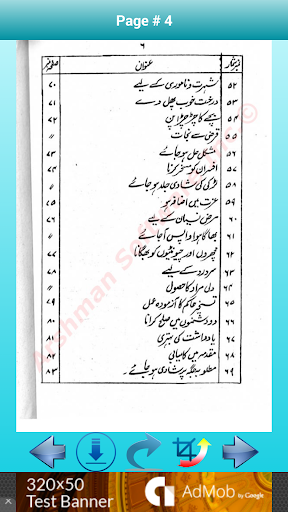 Page # 4
۶
نمبر شمار عنوان صفحہ نمبر
۵۲ شہرت و ناموری کے لیے ۷۰
۵۳ درخت خوب پھل دے ۷۱
۵۴ بچے کا چڑچڑا پن ۷۲
۵۵ قرض سے نجات 〃
۵۶ مشکل حل ہو جائے ۷۳
۵۷ افسران کو مسخر کرنا ۷۴
۵۸ لڑکی کی شادی جلد ہو جائے
۵۹ عزت میں اضافہ ہو ۷۵
۶۰ مرض نسیان کے لیے ۷۶
۶۱ بھاگا ہوا واپس آ جائے 〃
۶۲ مچھروں اور چیونٹیوں کو بھگانا ۷۷
۶۳ سر درد کے لیے ۷۸
۶۴ دلی مراد کا حصول 〃
۶۵ تسخیر حاکم کا آزمودہ عمل ۷۹
۶۶ دو دشمنوں میں صلح کرانا ۸۰
۶۷ یادداشت کی بہتری ۸۱
۶۸ مقدمہ میں کامیابی ۸۲
۶۹ مطلوبہ جگہ پر شادی ہو جائے۔ ۸۳
320x50
Test Banner
AdMob by Google